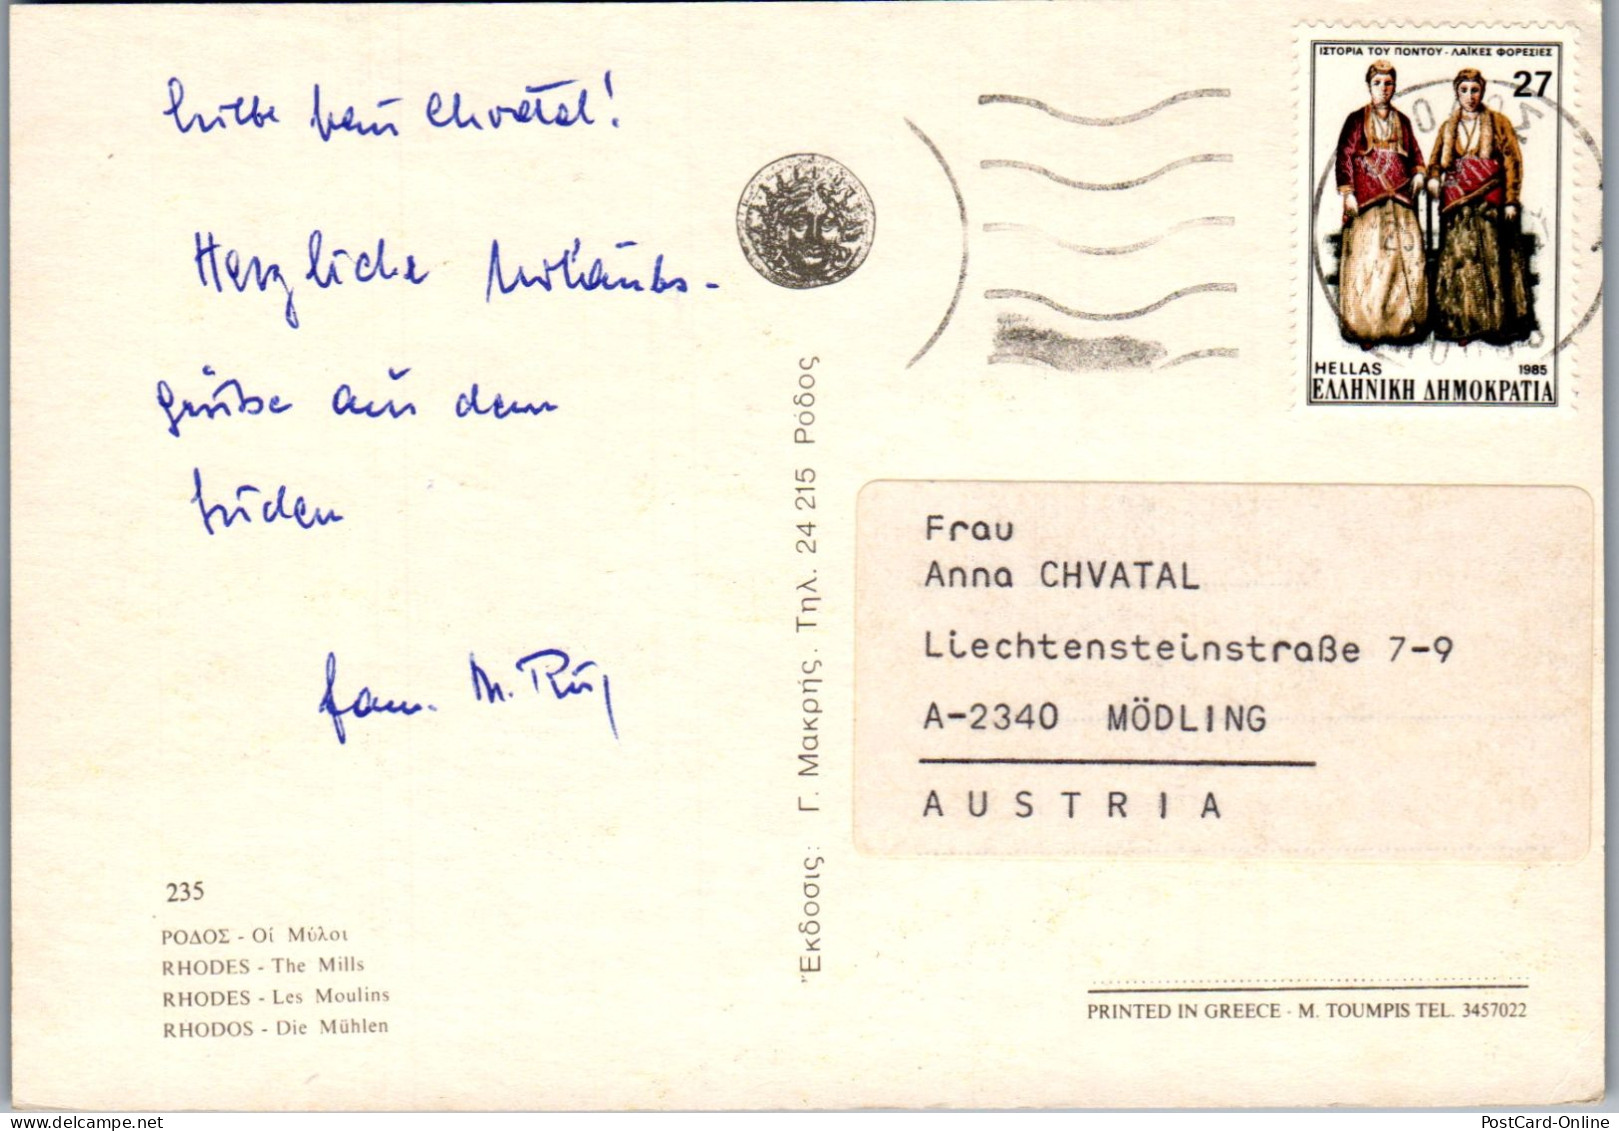 Liebe Frau Chvatal!
Herzliche Urlaubs-
grüße aus dem
Süden
Fam. M.
235
ΡΟΔΟΣ - Οἱ Μύλοι
RHODES - The Mills
RHODES - Les Moulins
RHODOS - Die Mühlen
Ἔκδοσις: Γ. Μακρής. Τηλ. 24 215 Ρόδος
ΙΣΤΟΡΙΑ ΤΟΥ ΠΟΝΤΟΥ - ΛΑΪΚΕΣ ΦΟΡΕΣΙΕΣ
27
HELLAS 1985
ΕΛΛΗΝΙΚΗ ΔΗΜΟΚΡΑΤΙΑ
Frau
Anna CHVATAL
Liechtensteinstraße 7-9
A-2340 MÖDLING
AUSTRIA
PRINTED IN GREECE - M. TOUMPIS TEL. 3457022
PostCard-Online